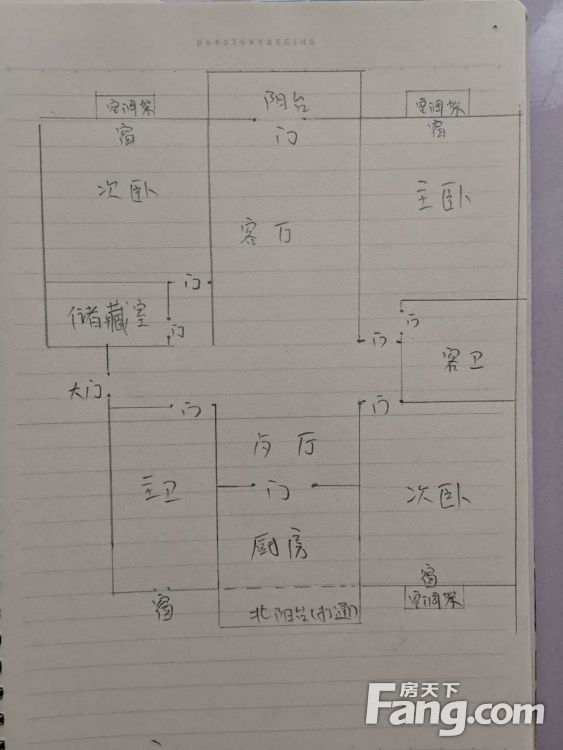 OURSTORYBEGINS
空调架
阳台
空调架
窗
门
窗
次卧
主卧
客厅
门
储藏室
门
门
门
客卫
大门
门
门
内厅
主卫
门
次卧
厨房
窗
窗
北阳台(打通)
空调架
房天下
Fang.com